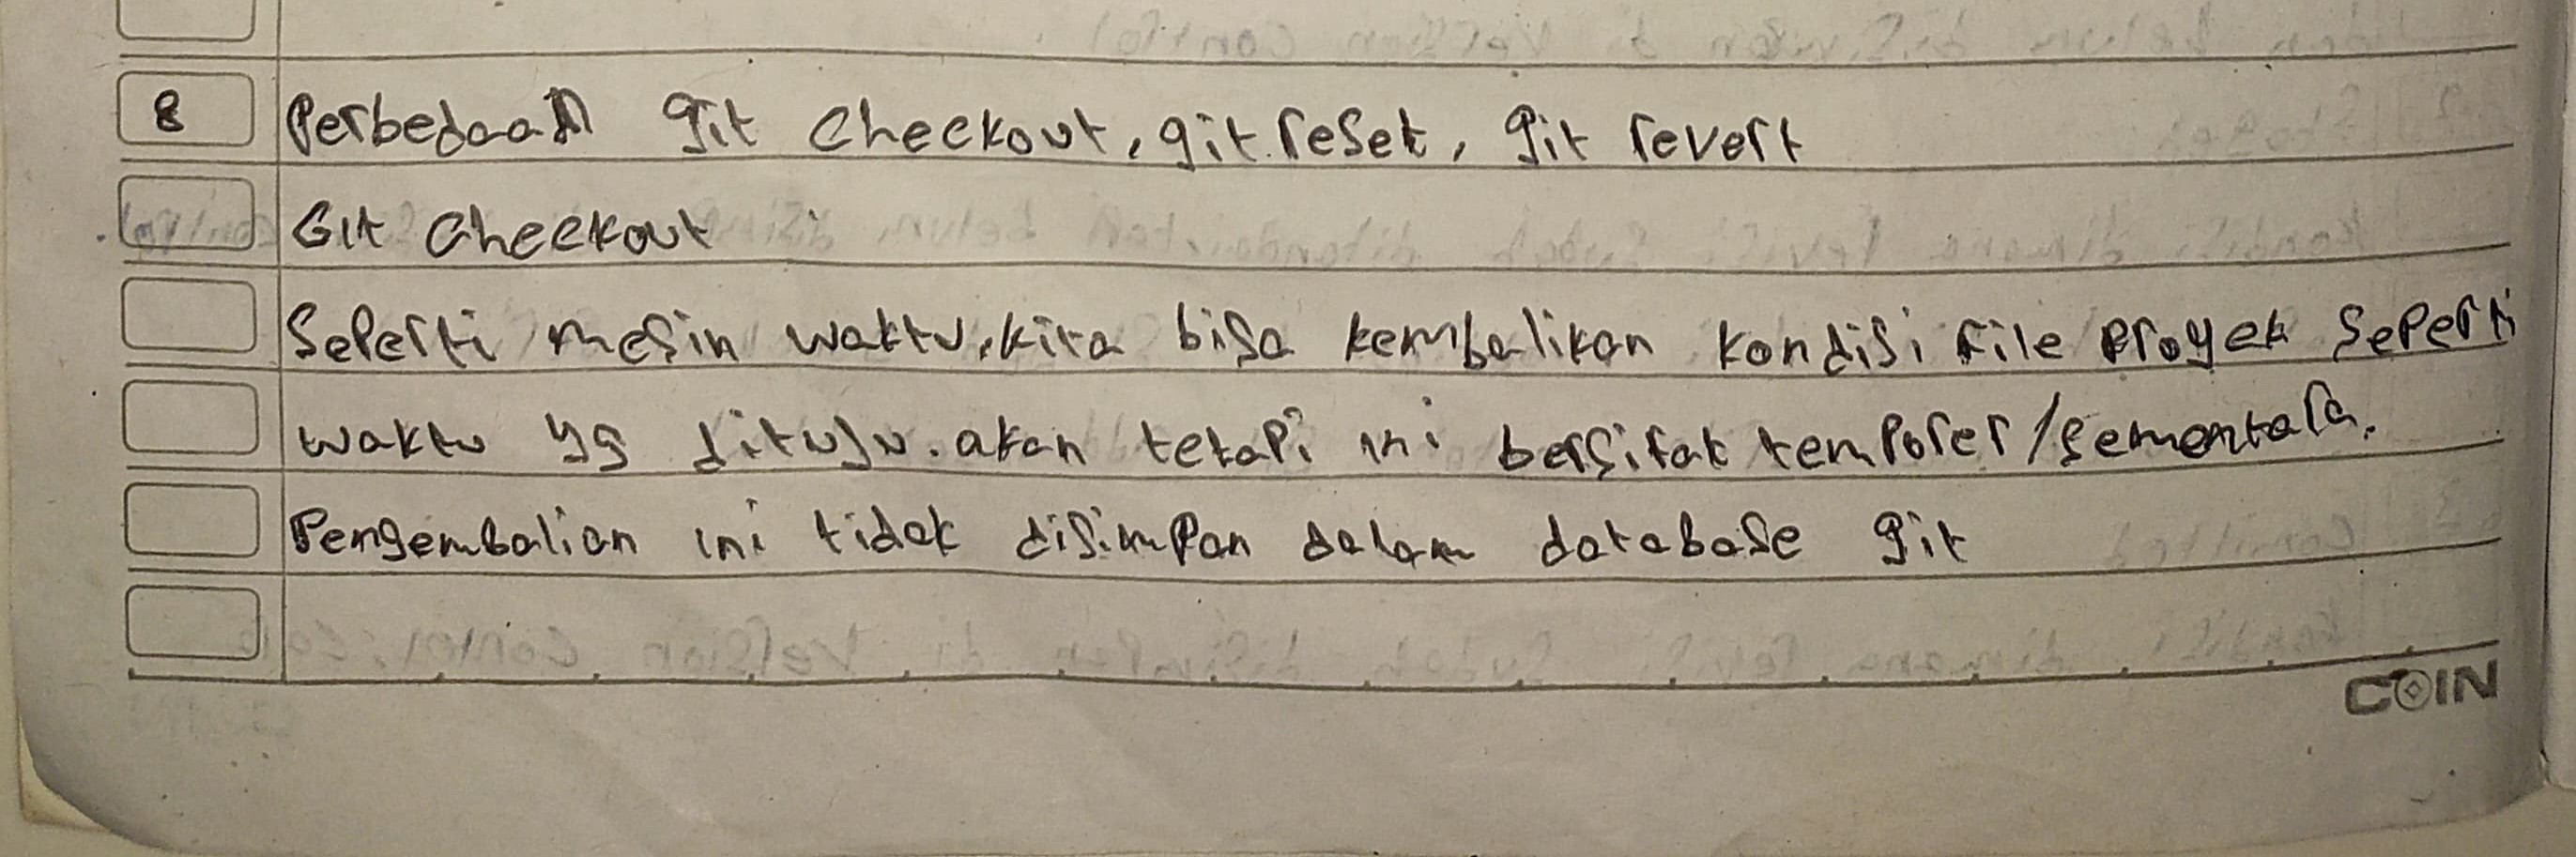 8 Perbedaan git checkout, git reset, git revert
Git checkout
Seperti mesin waktu, kita bisa kembalikan kondisi file proyek seperti
waktu yg dituju. akan tetapi ini bersifat temporer/sementara.
Pengembalian ini tidak disimpan dalam database git
COIN